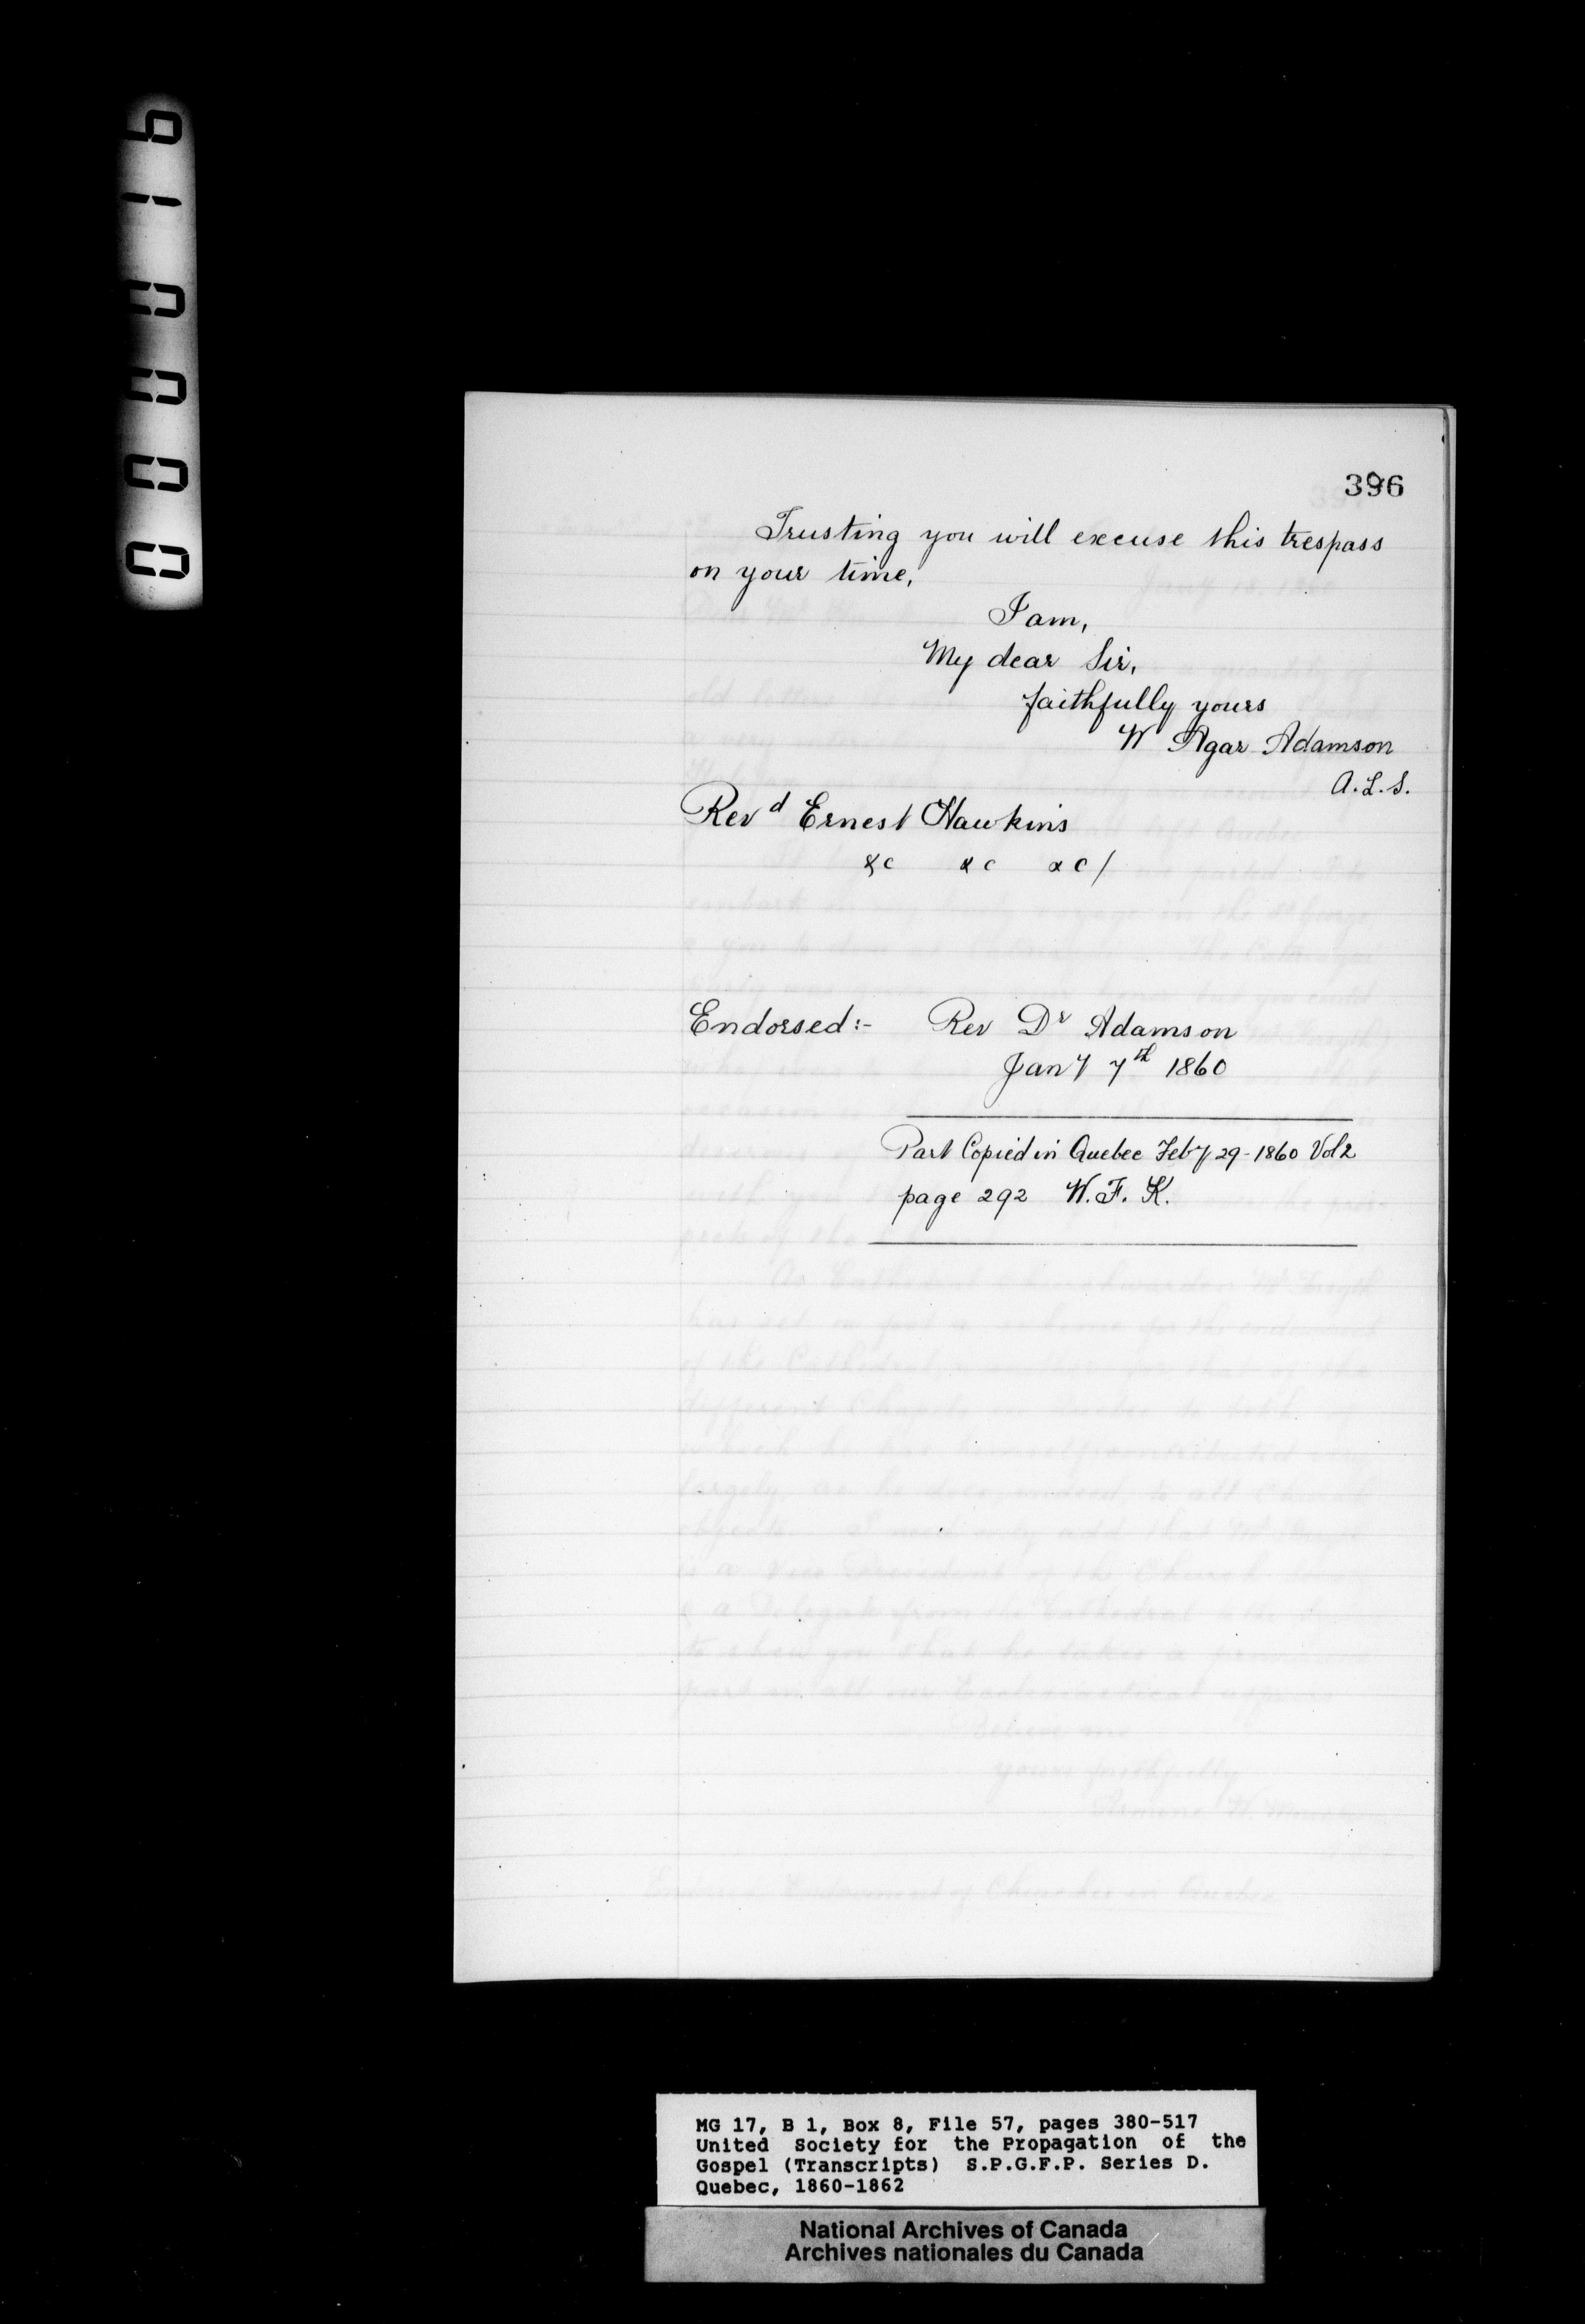 000016
396
Trusting you will excuse this trespass
on your time,
I am,
My dear Sir,
faithfully yours
W Agar Adamson
A.L.S.
Revd Ernest Hawkins
&c &c &c/
Endorsed:- Rev Dr Adamson
Jany 7th 1860
Part Copied in Quebec Feby 29-1860 Vol 2
page 292 W. F. K.
MG 17, B 1, Box 8, File 57, pages 380-517
United Society for the Propagation of the
Gospel (Transcripts) S.P.G.F.P. Series D.
Quebec, 1860-1862
National Archives of Canada
Archives nationales du Canada